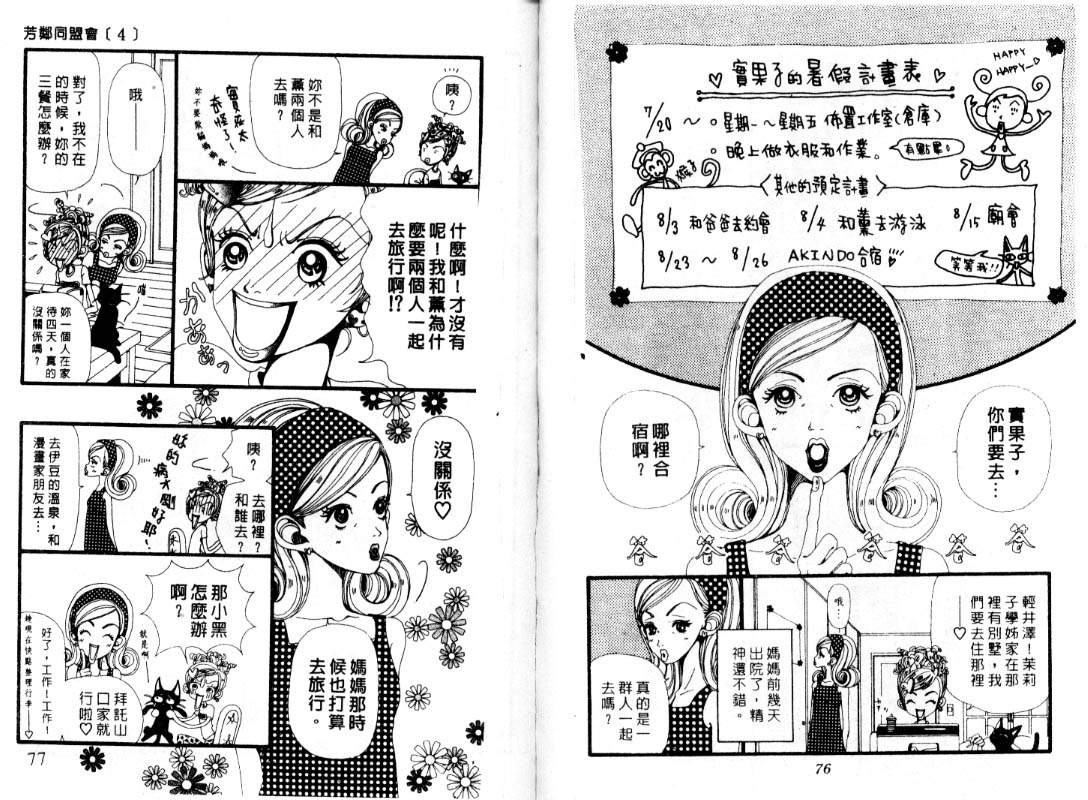 ♡實果子的暑假計畫表♡
HAPPY
HAPPY
7/20 ～ 。星期一～星期五 佈置工作室(倉庫)
。晚上做衣服和作業。
有點累。
猴子
其他的預定計畫
8/3 和爸爸去約會
8/4 和薰去游泳
8/15 廟會
8/23 ～ 8/26 AKINDO合宿
笑笑我!!
實果子，
你們要去…
哪裡合
宿啊？
答 答 答 答 答 答
輕井澤！茉莉
子學姊家在那
裡有別墅，我
們要去住那裡
♡
哦…
媽媽前幾天
出院了，精
神還不錯。
真的是一
群人一起
去嗎？
76
芳鄰同盟會〔4〕
咦？
妳不是和
薰兩個人
去嗎？
什麼啊！才沒有
呢！我和薰為什
麼要兩個人一起
去旅行啊!?
かあああっ
哦——
對了，我不在
的時候，妳的
三餐怎麼辦？
喵
妳一個人在家
待四天，真的
沒關係嗎？
沒關係♡
媽媽那時
候也打算
去旅行。
咦？
去哪裡？
和誰去？
妳的病才剛好耶！
去伊豆的溫泉，和
漫畫家朋友去…
那小黑
怎麼辦
啊？
就是啊
拜託山
口家就
行啦♡
好了，工作！工作！
77